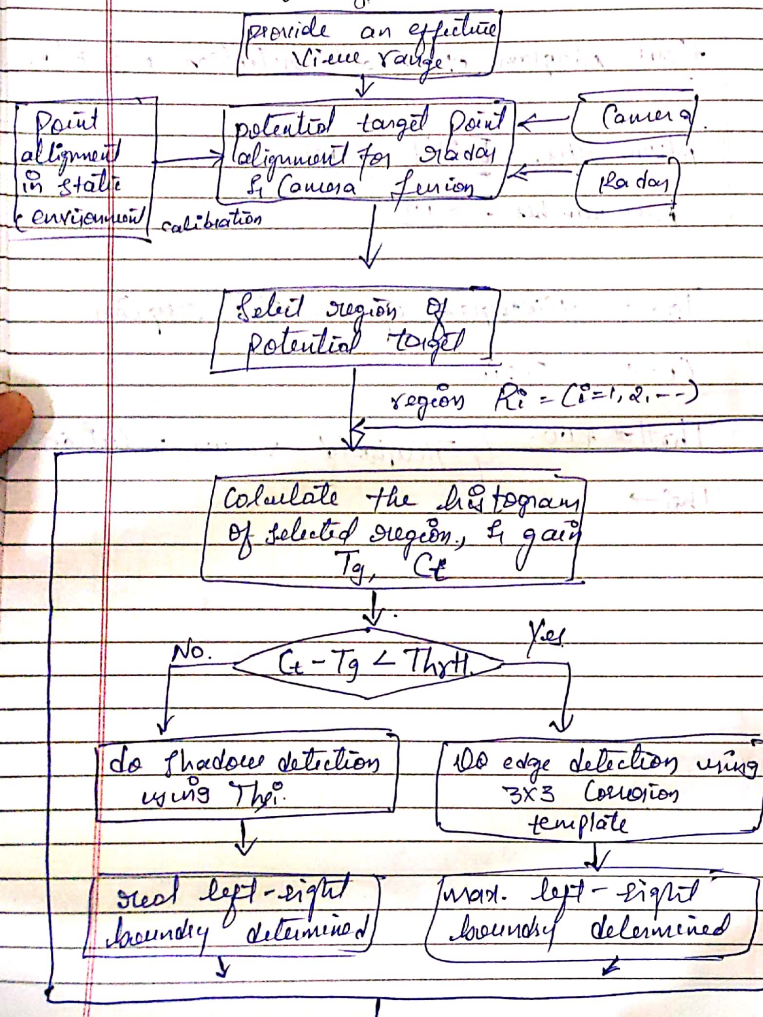 provide an effective
View range.
Point
allignment
in static
environment
calibration
potential target point
alignment for radar
& Camera fusion
Camera
Radar
Select region of
potential target
region Ri = (i=1,2,--)
Calculate the histogram
of selected region, & gain
Tg, Ct
No.
Ct - Tg < ThrH.
Yes
do shadow detection
using
Do edge detection using
3x3 Corrosion
template
real left-right
boundry determined
max. left-right
boundry determined